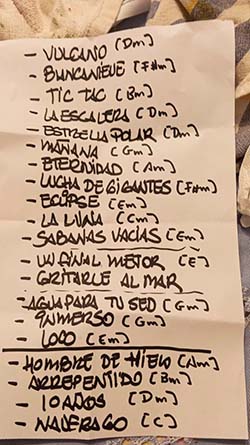 - VULCANO (Dm)
- BLANCANIEVE (F#m)
- TIC TAC (Bm)
- LA ESCALERA (Dm)
- ESTRELLA POLAR (Dm)
- MAÑANA (Gm)
- ETERNIDAD (Am)
- LUCHA DE GIGANTES (F#m)
- ECLIPSE (Em)
- LA LUNA (Cm)
- SABANAS VACÍAS (Em)
- UN FINAL MEJOR (E)
- GRITARLE AL MAR
- AGUA PARA TU SED (Gm)
- INMERSO (Gm)
- LOCO (Em)
- HOMBRE DE HIELO (Am)
- ARREPENTIDO (Bm)
- 10 AÑOS (Dm)
- NAUFRAGO (C)